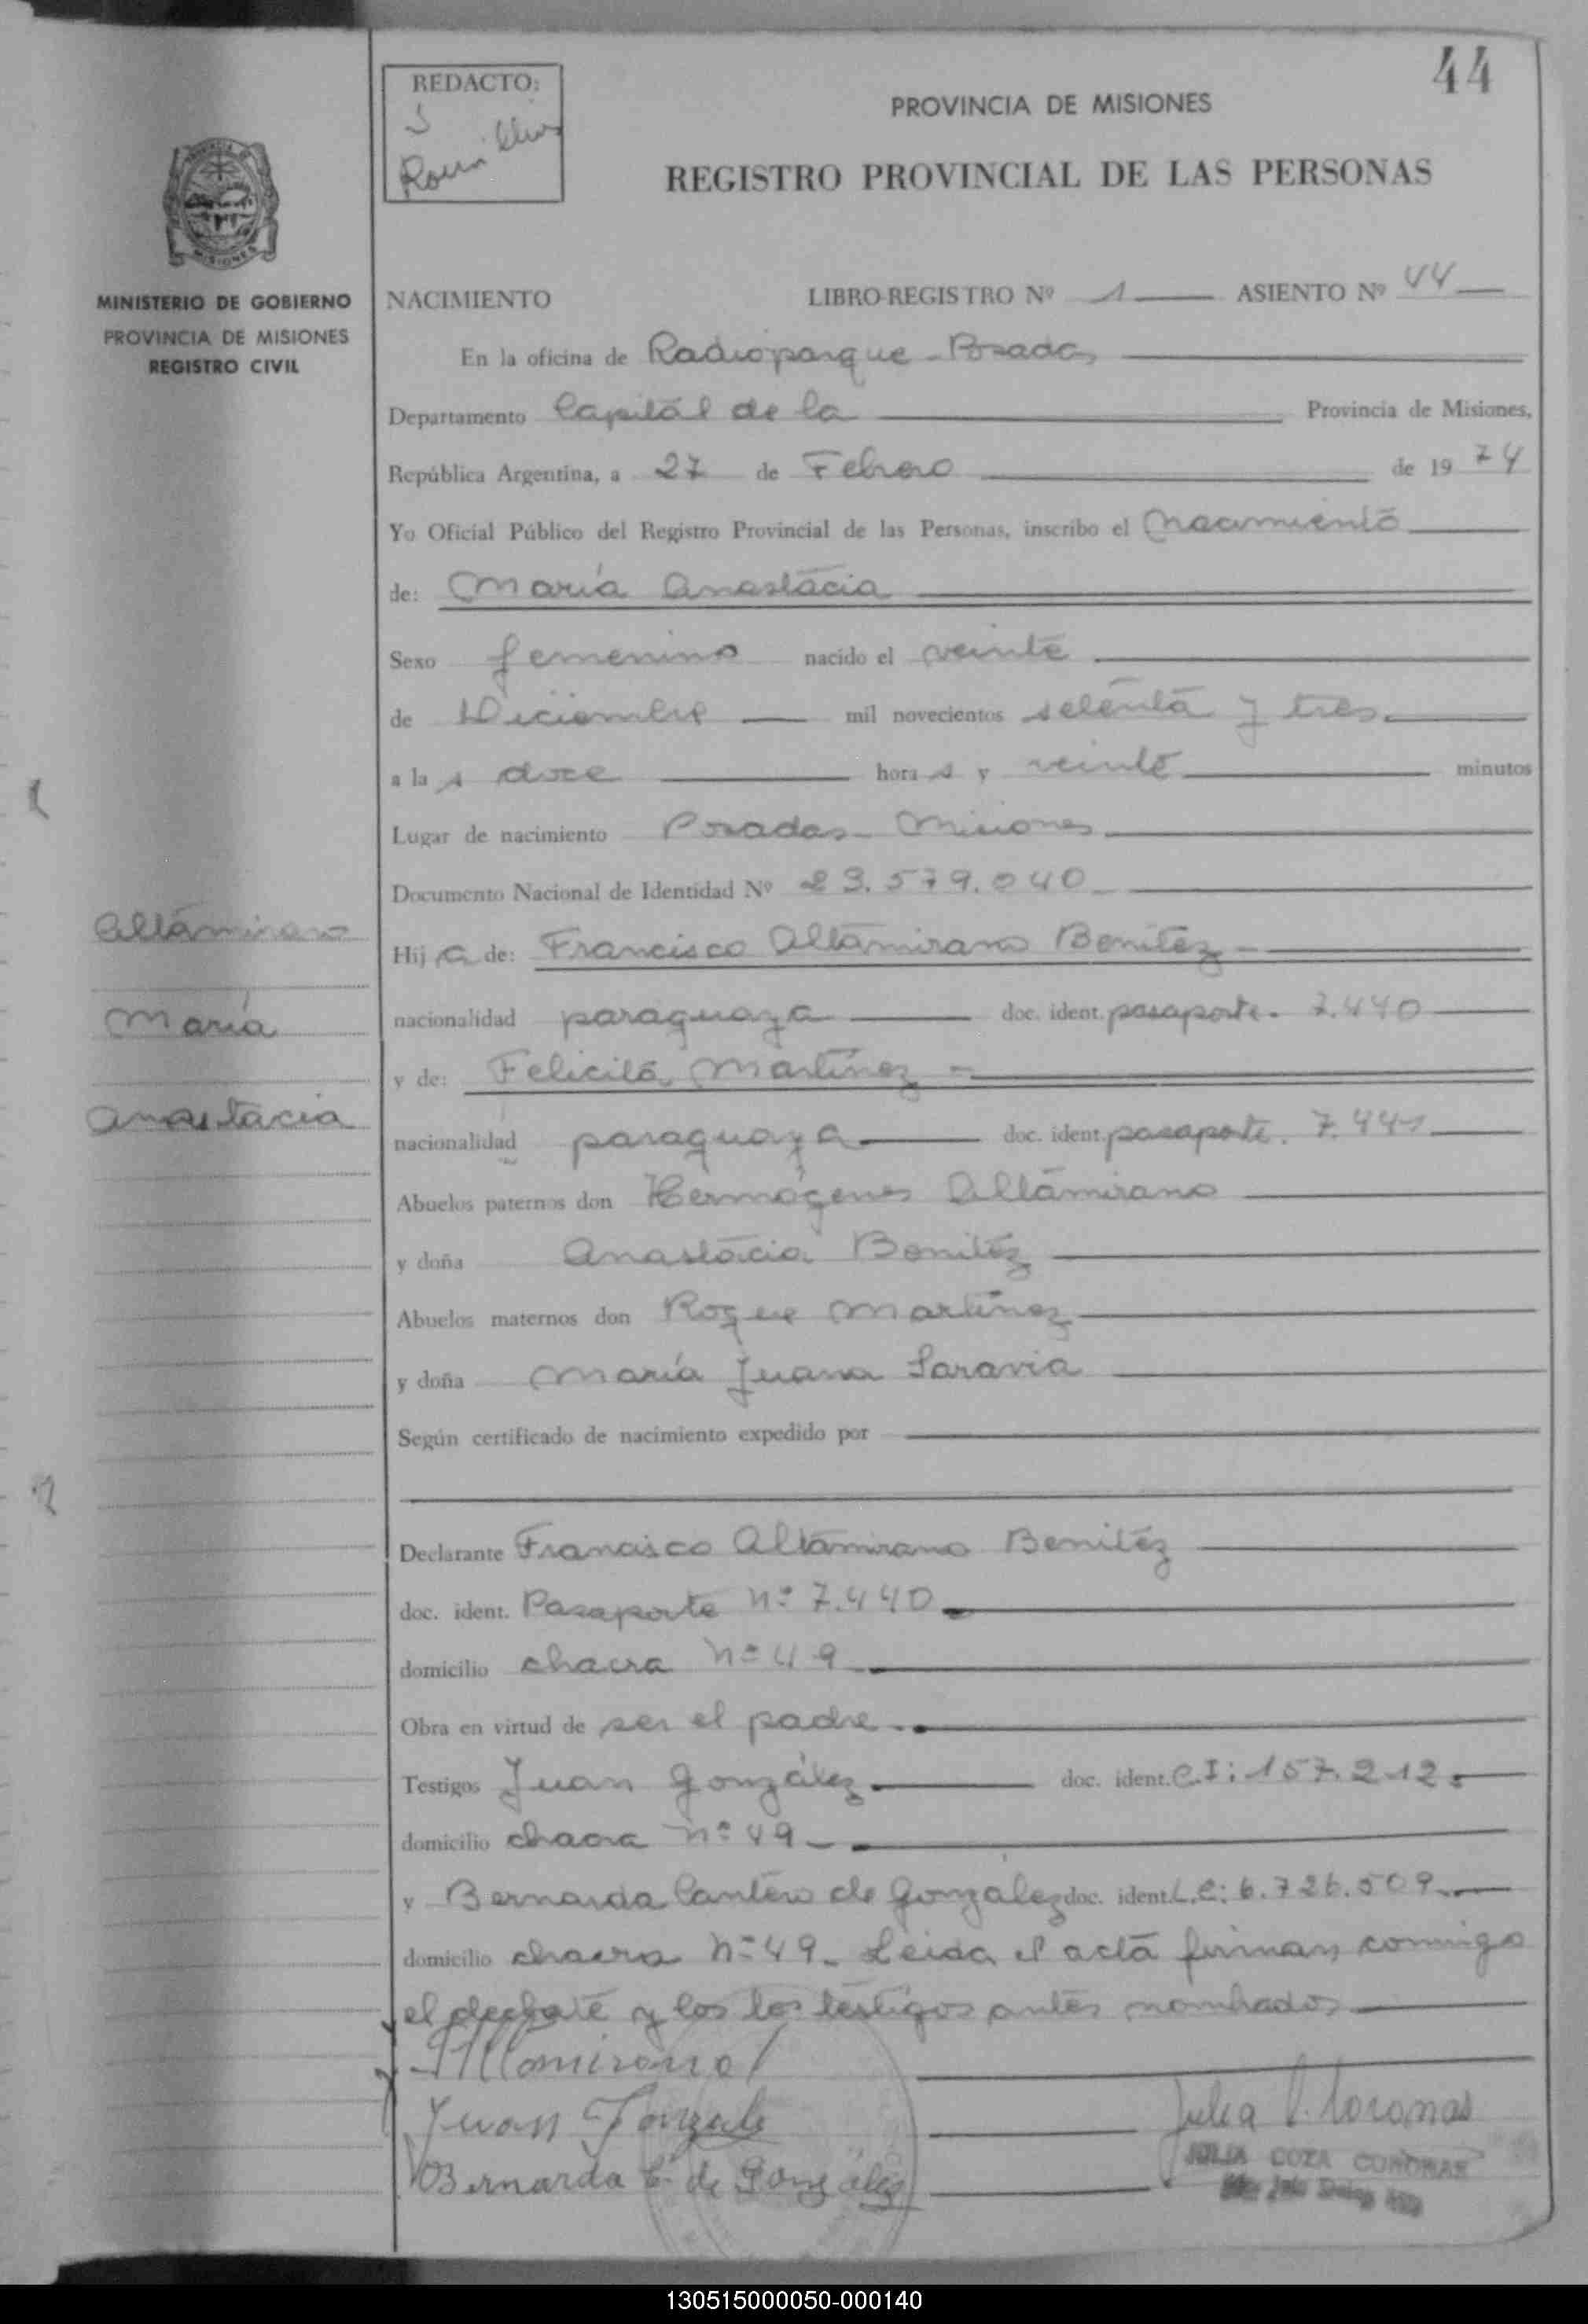 44
REDACTO:
PROVINCIA DE MISIONES
REGISTRO PROVINCIAL DE LAS PERSONAS
MISIONES
MINISTERIO DE GOBIERNO
PROVINCIA DE MISIONES
REGISTRO CIVIL
NACIMIENTO LIBRO-REGISTRO Nº 1 ASIENTO Nº 44
En la oficina de Radioparque - Posadas
Departamento Capital de la Provincia de Misiones,
República Argentina, a 27 de Febrero de 19 74
Yo Oficial Público del Registro Provincial de las Personas, inscribo el Nacimiento
de: María Anastacia
Sexo femenino nacido el veinte
de Diciembre mil novecientos setenta y tres
a la s doce hora s y veinte minutos
Lugar de nacimiento Posadas - Misiones
Documento Nacional de Identidad Nº 23.579.040
Altamirano
María
Anastacia
Hij a de: Francisco Altamirano Benitez
nacionalidad paraguaya doc. ident. pasaporte. 7.440
y de: Felicita Martínez
nacionalidad paraguaya doc. ident. pasaporte. 7.441
Abuelos paternos don Hermógenes Altamirano
y doña Anastacia Benitez
Abuelos maternos don Roque Martínez
y doña María Juana Saravia
Según certificado de nacimiento expedido por
Declarante Francisco Altamirano Benitéz
doc. ident. Pasaporte Nº 7.440
domicilio chacra Nº 49
Obra en virtud de ser el padre.
Testigos Juan González doc. ident. C.I: 157.212.
domicilio chacra Nº 49
y Bernarda Cantero de González doc. ident. L.C: 6.726.509
domicilio chacra Nº 49. Leida el acta firman conmigo
el y los los testigos antes nombrados
Altamirano
Juan Gonzale
Bernarda C. de González
Julia C. Coronas
JULIA COZA CORONAS
130515000050-000140